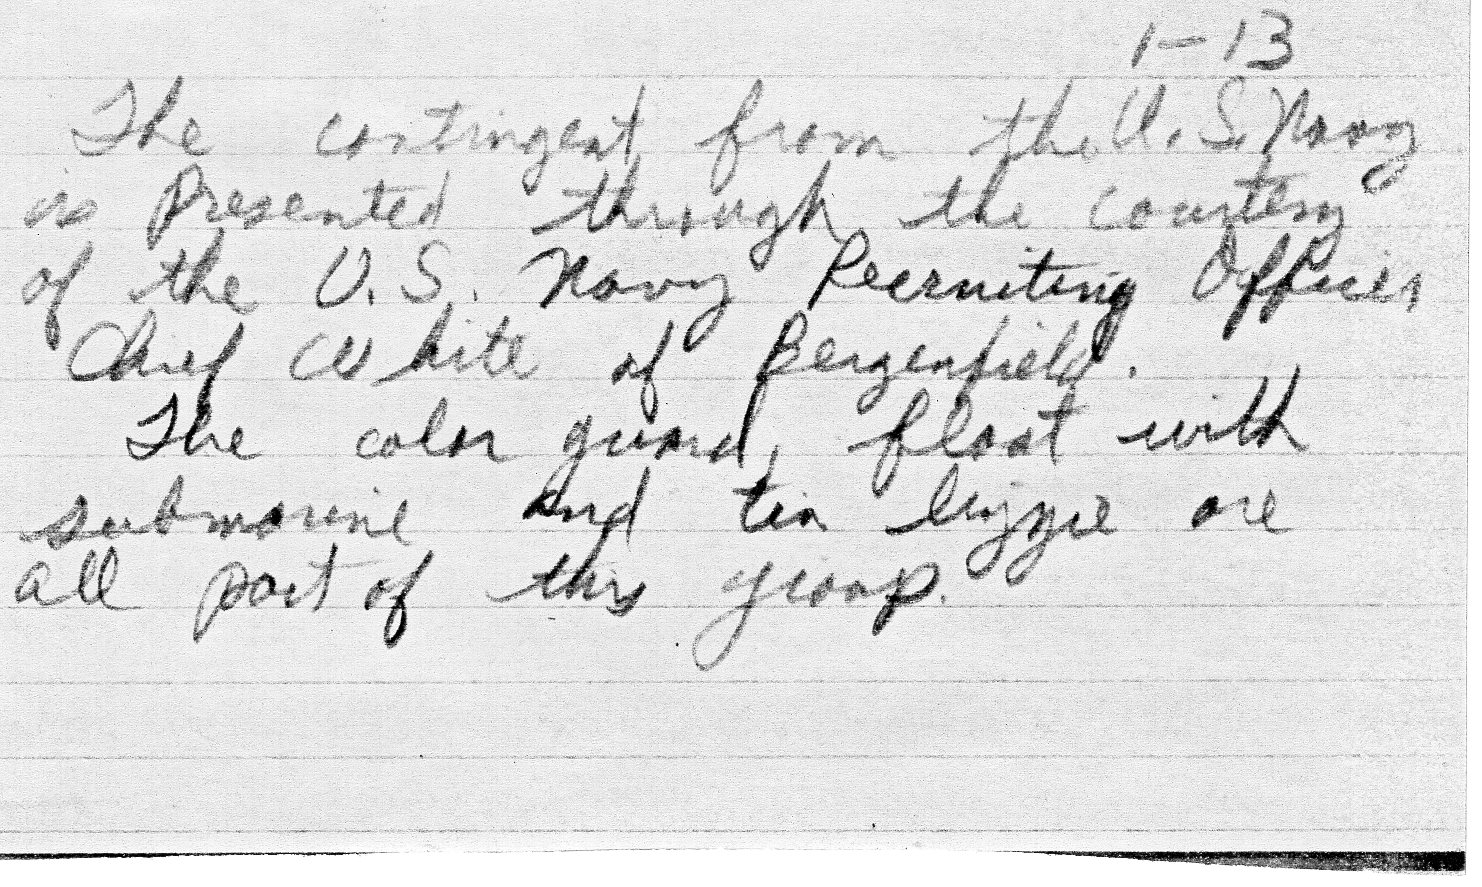 1-13
The contingent from the U.S. Navy
is Presented through the courtesy
of the U.S. Navy Recruiting Officer
Chief White of Bergenfield.
The color guard, float with
submarine and tin lizzie are
all part of this group.